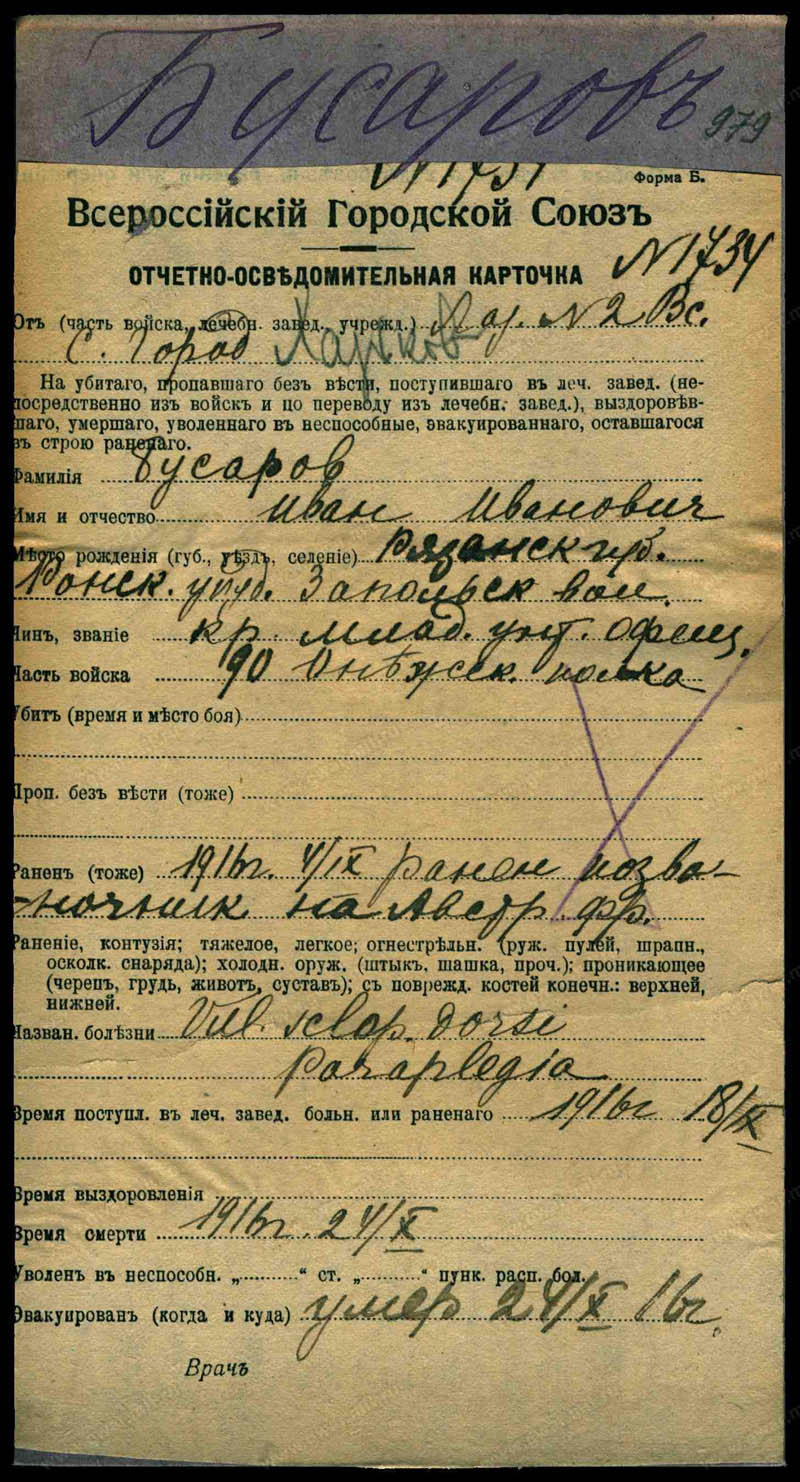 Бусаровъ 979
N 1731
Форма Б.
Всероссійскій Городской Союзъ
ОТЧЕТНО-ОСВѢДОМИТЕЛЬНАЯ КАРТОЧКА N 1734
Отъ (часть войска, лечебн. завед., учрежд.) Лаз. N 2 Вс.
С. Город Харьков
На убитаго, пропавшаго безъ вѣсти, поступившаго въ леч. завед. (не-
посредственно изъ войскъ и по переводу изъ лечебн. завед.), выздоровѣв-
шаго, умершаго, уволеннаго въ неспособные, эвакуированнаго, оставшагося
въ строю раненаго.
Фамилія Бусаров
Имя и отчество Иван Иванович
Мѣсто рожденія (губ., уѣздъ, селеніе) Рязанск губ.
уѣзд. Запольск вол.
Чинъ, званіе кр. млад. унт. офиц.
Часть войска 90 Онѣжск. полка
Убитъ (время и мѣсто боя)
Проп. безъ вѣсти (тоже)
Раненъ (тоже) 1916г. 4/IX ранен позво-
ночник на Австр. фр.
Раненіе, контузія; тяжелое, легкое; огнестрѣльн. (руж. пулей, шрапн.,
осколк. снаряда); холодн. оруж. (штыкъ, шашка, проч.); проникающее
(черепъ, грудь, животъ, суставъ); съ поврежд. костей конечн.: верхней,
нижней.
Назван. болѣзни Vul. sclop. dorsi
Paraplegia
Время поступл. въ леч. завед. больн. или раненаго 1916г 18/IX
Время выздоровленія
Время смерти 1916г. 24/X
Уволенъ въ неспособн. „ “ ст. „ “ пунк. расп. бол.
Эвакуированъ (когда и куда) умер 24/X 16г.
Врачъ